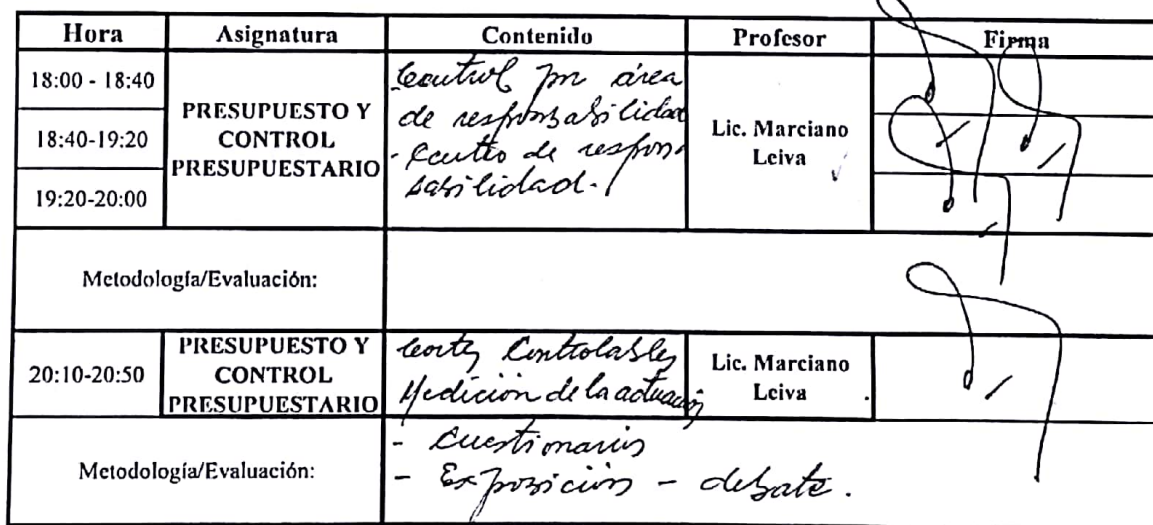 Hora Asignatura Contenido Profesor Firma
18:00 - 18:40
18:40-19:20
19:20-20:00
PRESUPUESTO Y
CONTROL
PRESUPUESTARIO
Control por área
de responsabilidad
- Centro de respon-
sabilidad.
Lic. Marciano
Leiva
Metodología/Evaluación:
20:10-20:50
PRESUPUESTO Y
CONTROL
PRESUPUESTARIO
Costos Controlables
Medición de la actuación
Lic. Marciano
Leiva
Metodología/Evaluación:
- Cuestionarios
- Exposición - debate.